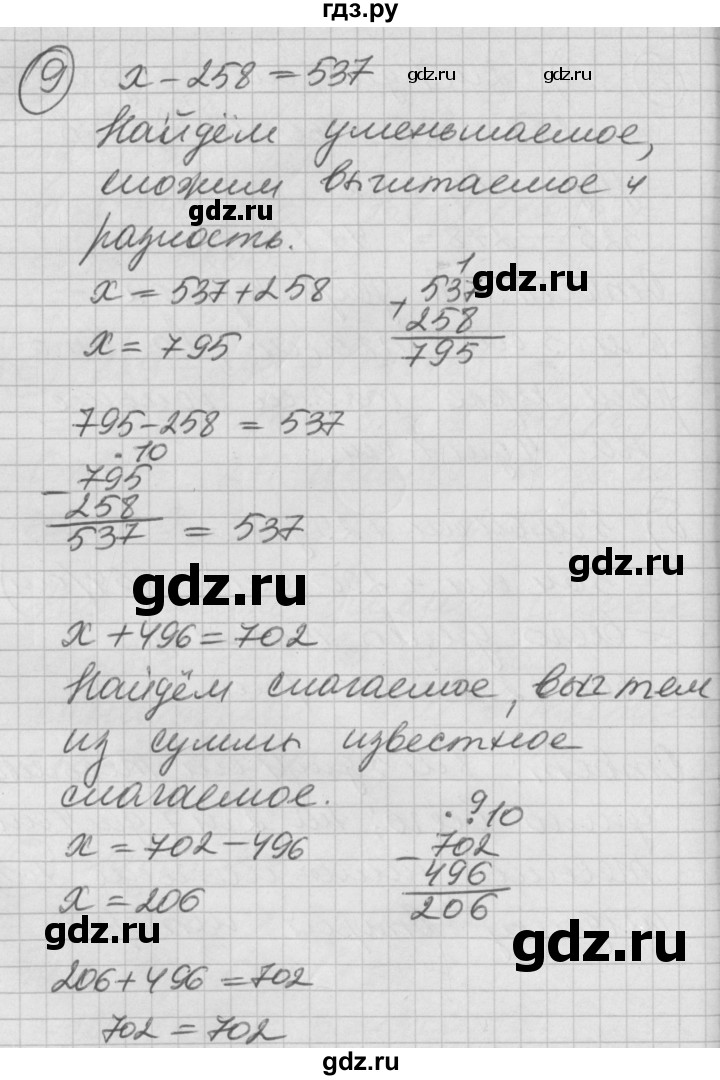 гдз.ру
9 x - 258 = 537
gdz.ru gdz.ru
Найдём уменьшаемое,
сложим вычитаемое и
gdz.ru
разность.
x = 537 + 258
1
537
gdz.ru
+
258
795
x = 795
795 - 258 = 537
. 10
- 795
258
537 = 537
gdz.ru
gdz.ru
x + 496 = 702
Найдём слагаемое, вычтем
из суммы известное
слагаемое.
x = 702 - 496
. 9
. 10
- 702
496
206
x = 206
gdz.ru
gdz.ru
206 + 496 = 702
702 = 702
gdz.ru